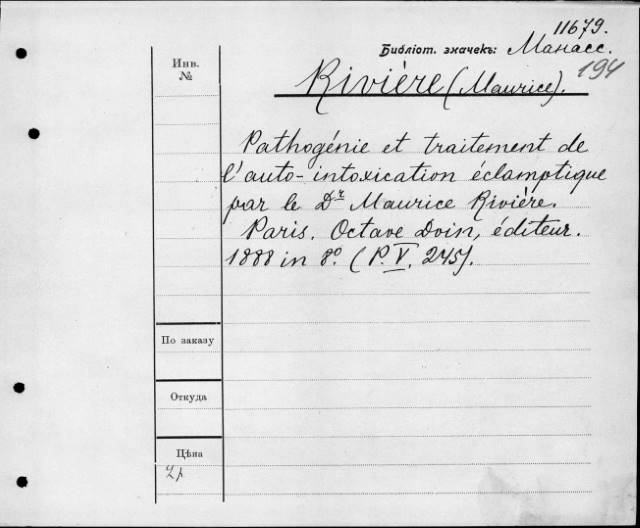 11679.
Библіот. значекъ: Манасс.
194
Инв.
№
Rivière (Maurice).
Pathogénie et traitement de
l'auto-intoxication éclamptique
par le Dr Maurice Rivière.
Paris. Octave Doin, éditeur.
1888 in 8º. (P. V. 245).
По заказу
Откуда
Цѣна
2р